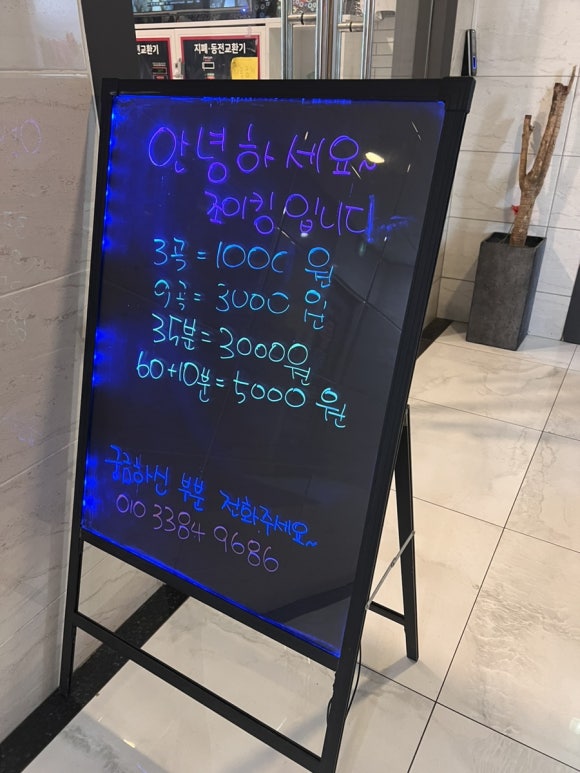 지폐·동전교환기
지폐·동전교환기
안녕하세요~
조이킹입니다
3곡 = 1000 원
9곡 = 3000 원
35분 = 3000원
60+10분 = 5000 원
궁금하신 부분 전화주세요~
010 3384 9686